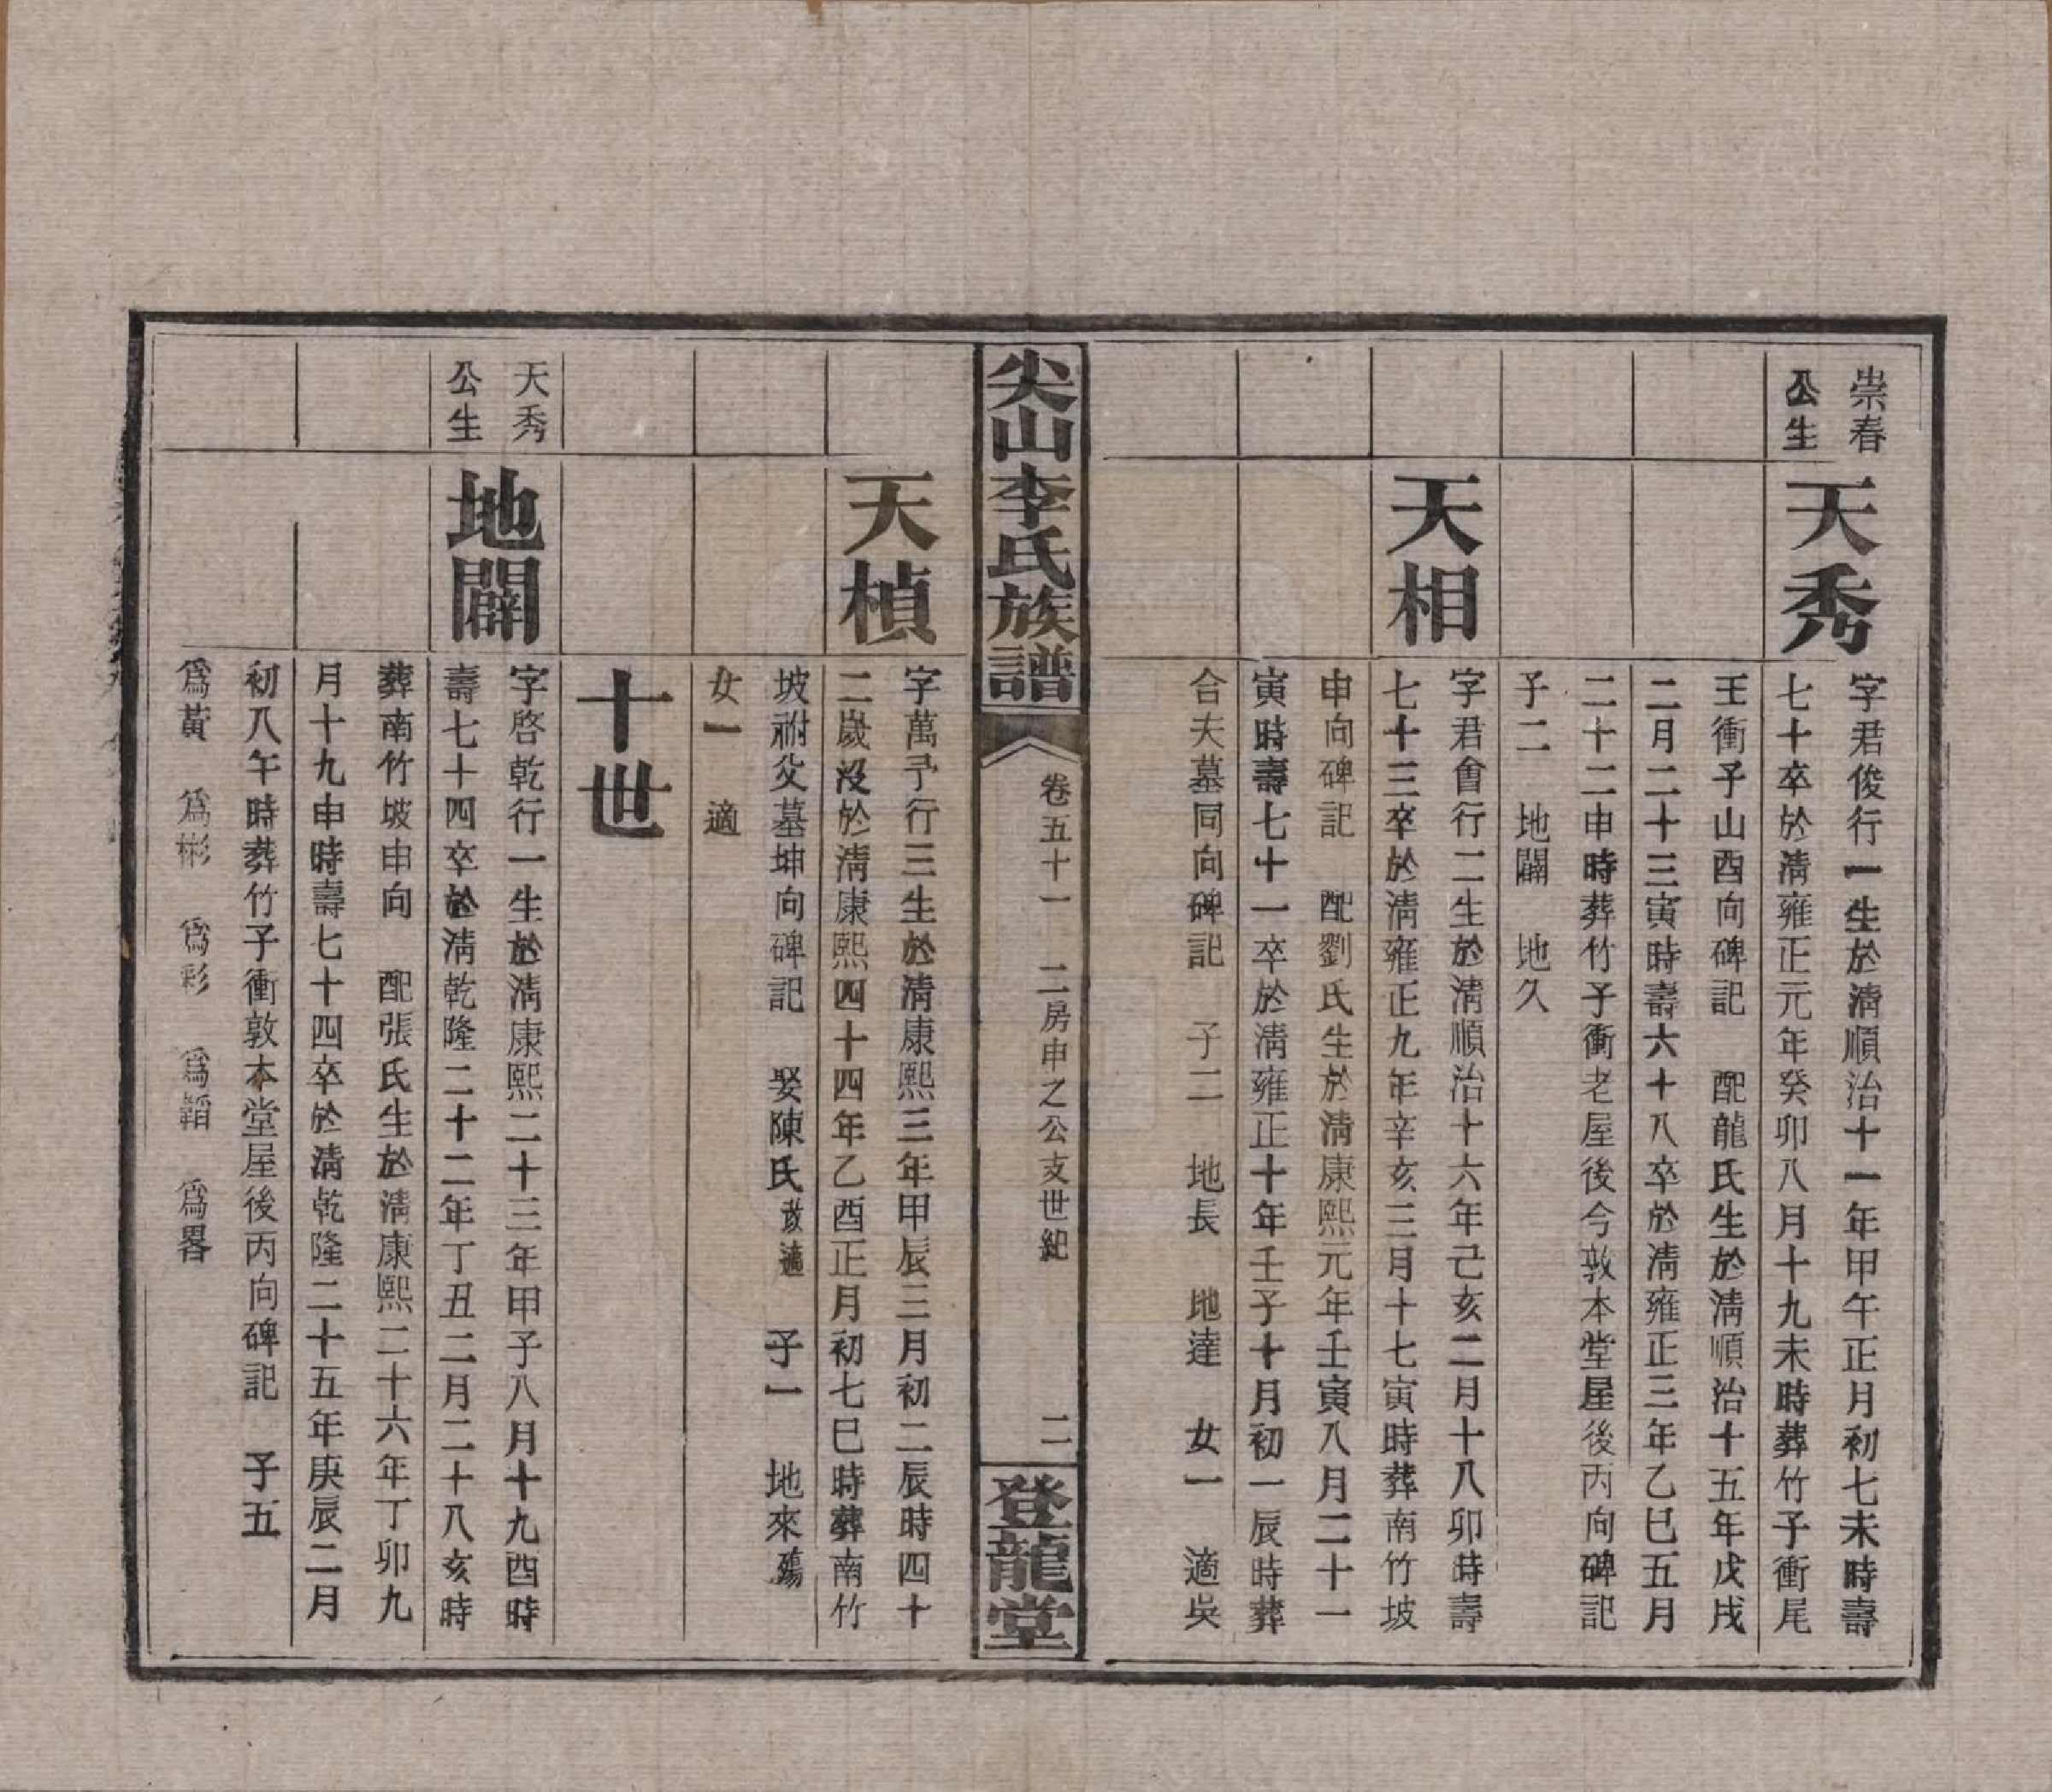 崇春
公生
天秀
字君俊行一生於清順治十一年甲午正月初七未時壽
七十卒於清雍正元年癸卯八月十九未時葬竹子衝尾
王衝子山酉向碑記　配龍氏生於清順治十五年戊戌
二月二十三寅時壽六十八卒於清雍正三年乙巳五月
二十二申時葬竹子衝老屋後今敦本堂屋後丙向碑記
子二　地闢　地久
天相
字君會行二生於清順治十六年己亥二月十八卯時壽
七十三卒於清雍正九年辛亥三月十七寅時葬南竹坡
申向碑記　配劉氏生於清康熙元年壬寅八月二十一
寅時壽七十一卒於清雍正十年壬子十月初一辰時葬
合夫墓同向碑記　子二　地長　地達　女一　適吳
尖山李氏族譜
卷五十一　二房申之公支世紀　二
登龍堂
天楨
字萬予行三生於清康熙三年甲辰三月初二辰時四十
二歲沒於清康熙四十四年乙酉正月初七巳時葬南竹
坡祔父墓坤向碑記　娶陳氏改適　子一　地來殤
女一　適
十世
天秀
公生
地闢
字啓乾行一生於清康熙二十三年甲子八月十九酉時
壽七十四卒於清乾隆二十二年丁丑二月二十八亥時
葬南竹坡申向　配張氏生於清康熙二十六年丁卯九
月十九申時壽七十四卒於清乾隆二十五年庚辰二月
初八午時葬竹子衝敦本堂屋後丙向碑記　子五
爲黃　爲彬　爲彩　爲韜　爲畧